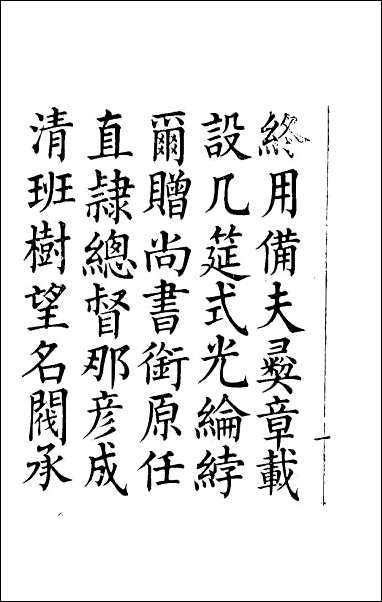 終用備夫彝章載
設几筵式光綸綍
爾贈尚書銜原任
直隷總督那彦成
清班樹望名閥承